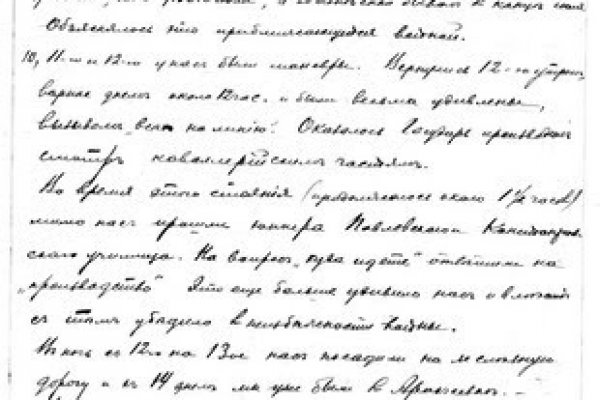 Объяснялось это приближающейся войной.
10, 11-го и 12-го у нас были маневры. Вернулись 12-го утром,
вернее днем около 12 час. и были весьма удивлены,
вызовом „всех на линию“. Оказалось Государь производил
смотр кавалерийским частям.
Во время этого стояния (продолжалось около 1½ часов)
мимо нас прошли юнкера Павловского
училища. На вопрос „куда идете“ отвечали на
„производство“ Это еще больше удивило нас и
с тем убедило в неизбежности войны.
В ночь с 12-го на 13-ое нас посадили на железную
дорогу и 14 днем мы уже были в